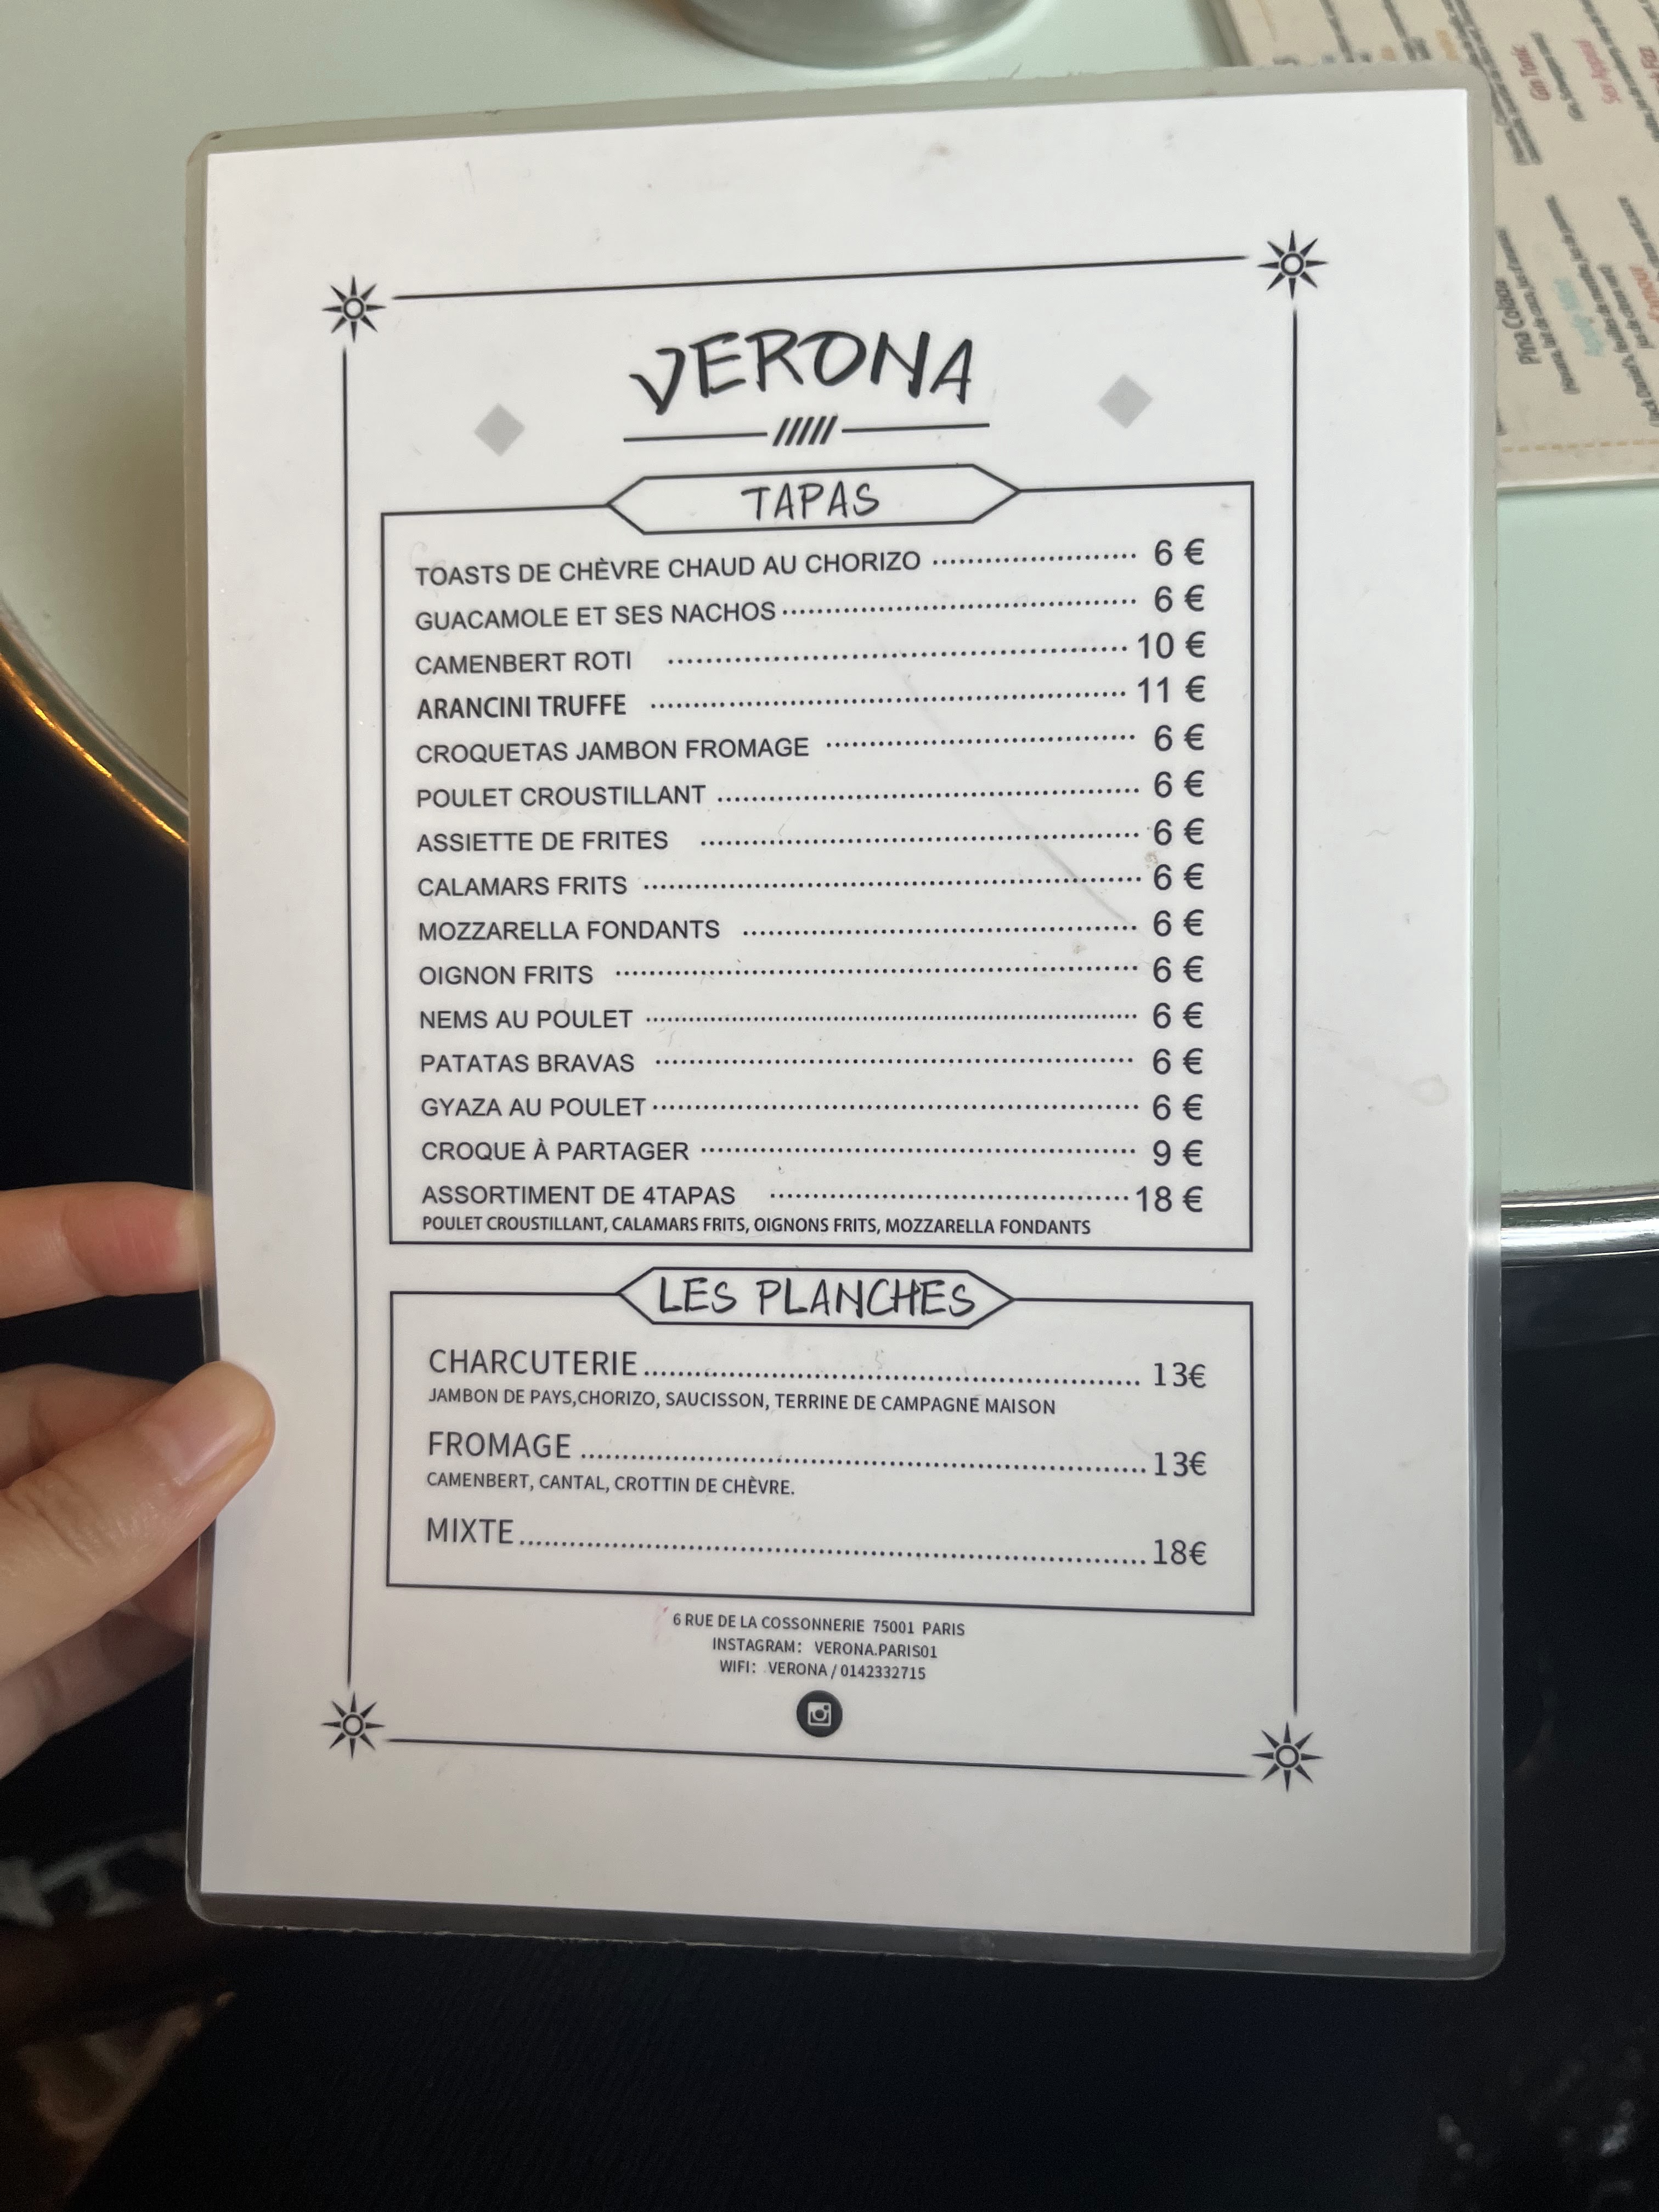 VERONA
TAPAS
TOASTS DE CHÈVRE CHAUD AU CHORIZO 6 €
GUACAMOLE ET SES NACHOS 6 €
CAMENBERT ROTI 10 €
ARANCINI TRUFFE 11 €
CROQUETAS JAMBON FROMAGE 6 €
POULET CROUSTILLANT 6 €
ASSIETTE DE FRITES 6 €
CALAMARS FRITS 6 €
MOZZARELLA FONDANTS 6 €
OIGNON FRITS 6 €
NEMS AU POULET 6 €
PATATAS BRAVAS 6 €
GYAZA AU POULET 6 €
CROQUE À PARTAGER 9 €
ASSORTIMENT DE 4TAPAS 18 €
POULET CROUSTILLANT, CALAMARS FRITS, OIGNONS FRITS, MOZZARELLA FONDANTS
LES PLANCHES
CHARCUTERIE 13€
JAMBON DE PAYS,CHORIZO, SAUCISSON, TERRINE DE CAMPAGNE MAISON
FROMAGE 13€
CAMENBERT, CANTAL, CROTTIN DE CHÈVRE.
MIXTE 18€
6 RUE DE LA COSSONNERIE 75001 PARIS
INSTAGRAM: VERONA.PARIS01
WIFI: VERONA / 0142332715
Gin Tonic
Pina Colada